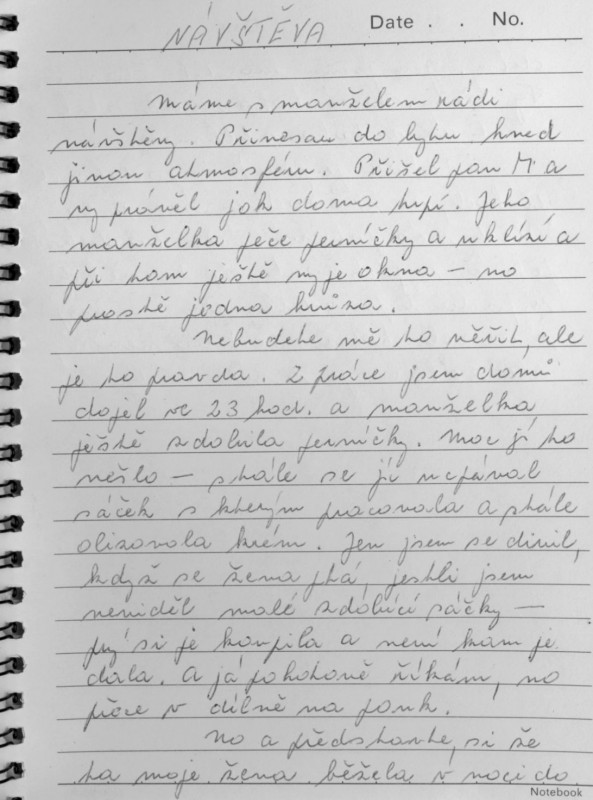 NÁVŠTĚVA
Date . . No.
Máme s manželem rádi
návštěvy. Přinesou do bytu hned
jinou atmosféru. Přišel pan M a
vyprávěl jak doma trpí. Jeho
manželka peče perníčky a uklízí a
při tom ještě myje okna – no
prostě jedna hrůza.
Nebudete mě to věřit, ale
je to pravda. Z práce jsem domů
dojel ve 23 hod. a manželka
ještě zdobila perníčky. Moc jí to
nešlo – stále se jí ucpával
sáček s kterým pracovala a stále
olizovala krém. Jen jsem se divil,
když se žena ptá, jestli jsem
neviděl malé zdobící sáčky –
prý si je koupila a neví kam je
dala. A já pohotově říkám, no
přece v dílně na ponk.
No a představte, si že
ta moje žena běžela v noci do
Notebook